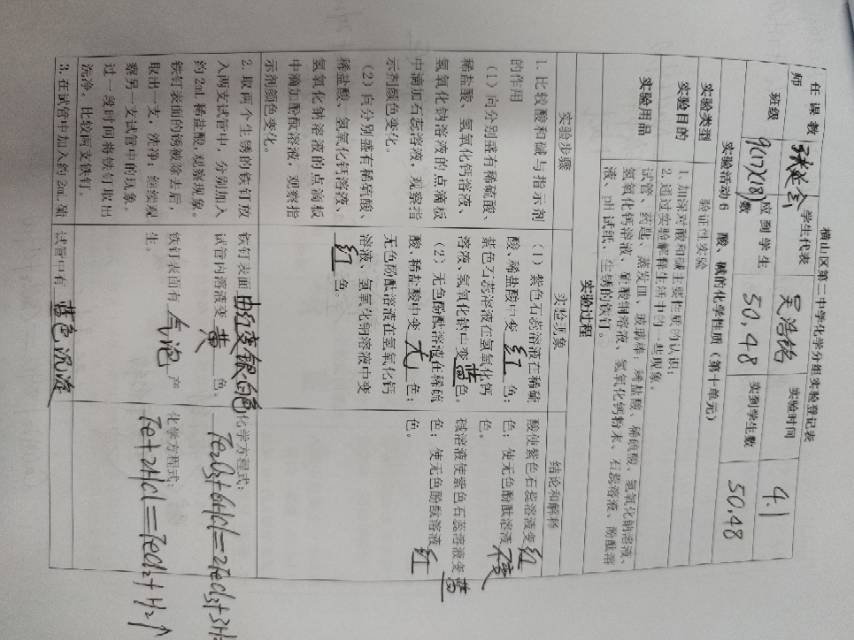 横山区第二中学化学分组实验登记表
任课教师 张延会 学生代表 吴浩铭 实验时间 4.1
班级 9(17)(18) 应到学生数 50,48 实到学生数 50.48
实验活动6 酸、碱的化学性质（第十单元）
实验类型 验证性实验
实验目的 1.加深对酸和碱主要性质的认识；
2.通过实验解释生活中的一些现象。
实验用品 试管、药匙、蒸发皿、玻璃棒；稀盐酸、稀硫酸、氢氧化钠溶液、
氢氧化钙溶液、硫酸铜溶液、氢氧化钙粉末、石蕊溶液、酚酞溶
液、pH 试纸、生锈的铁钉。
实验过程
实验步骤 实验现象 结论和解释
1.比较酸和碱与指示剂
的作用
（1）向分别盛有稀硫酸、
稀盐酸、氢氧化钙溶液、
氢氧化钠溶液的点滴板
中滴加石蕊溶液，观察指
示剂颜色变化。
（2）向分别盛有稀硫酸、
稀盐酸、氢氧化钙溶液、
氢氧化钠溶液的点滴板
中滴加酚酞溶液，观察指
示剂颜色变化。
（1）紫色石蕊溶液在稀硫
酸、稀盐酸中变 红 色；
紫色石蕊溶液在氢氧化钙
溶液、氢氧化钠中变 蓝 色。
（2）无色酚酞溶液在稀硫
酸、稀盐酸中变 无 色；
无色酚酞溶液在氢氧化钙
溶液、氢氧化钠溶液中变
红 色。
酸使紫色石蕊溶液变 红
色；使无色酚酞溶液 不变
色。
碱溶液使紫色石蕊溶液变 蓝
色；使无色酚酞溶液 红
色。
2.取两个生锈的铁钉放
入两支试管中，分别加入
约 2ml 稀盐酸,观察现象。
铁钉表面的锈被除去后，
取出一支，洗净；继续观
察另一支试管中的现象。
过一段时间将铁钉取出
洗净，比较两支铁钉。
铁钉表面 由红变银白色
试管内溶液变 黄 色。
铁钉表面有 气泡 产
生。
化学方程式：
Fe2O3+6HCl=2FeCl3+3H
化学方程式：
Fe+2HCl=FeCl2+H2↑
3.在试管中加入约 2mL
试管中有 蓝色沉淀